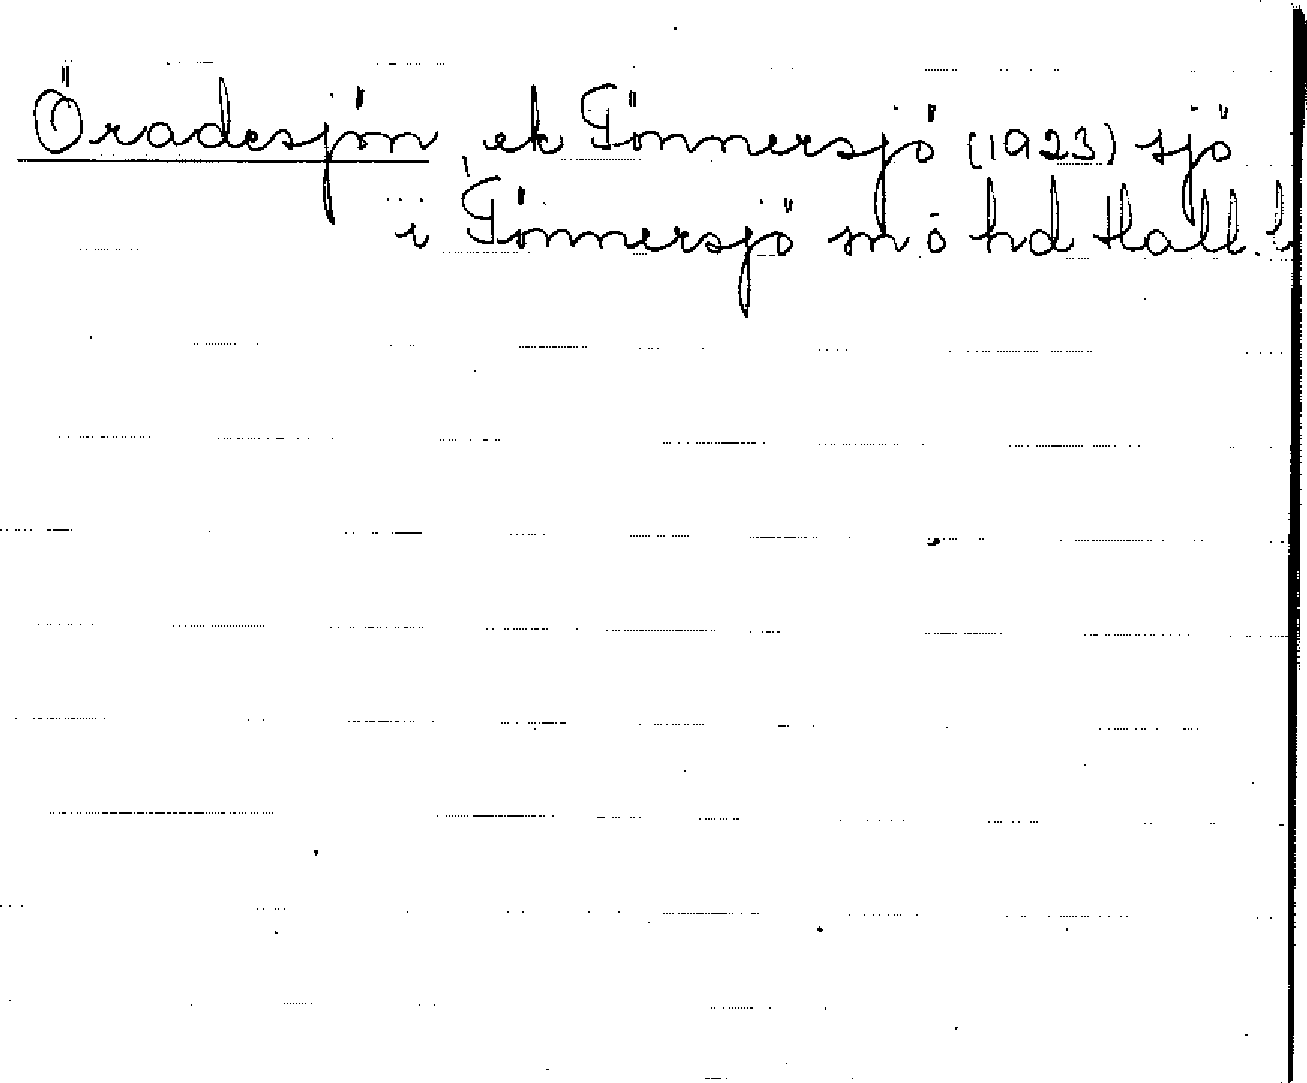 Öradesjön, ek Tönnersjö (1923) sjö
i Tönnersjö sn o hd Hall. l